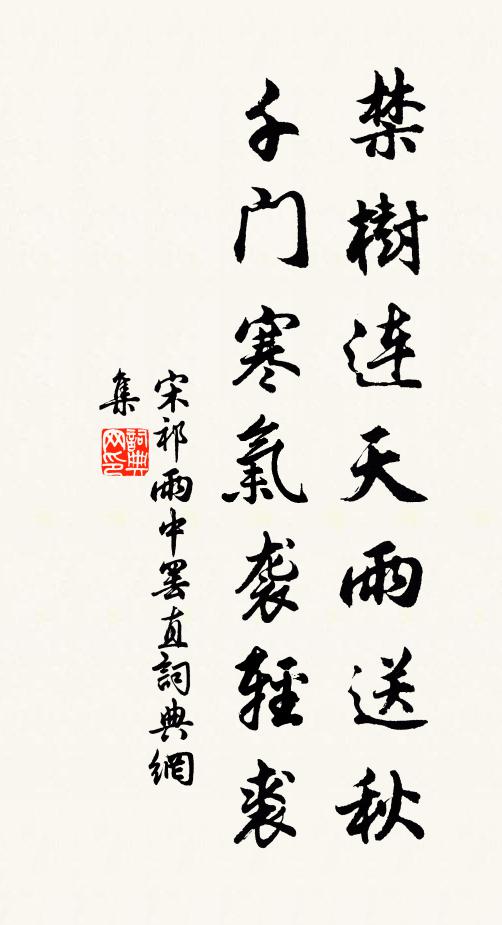 禁樹連天雨送秋
千門寒氣袭輕裘
宋祁雨中罢直詞典網
集
詞典
网印